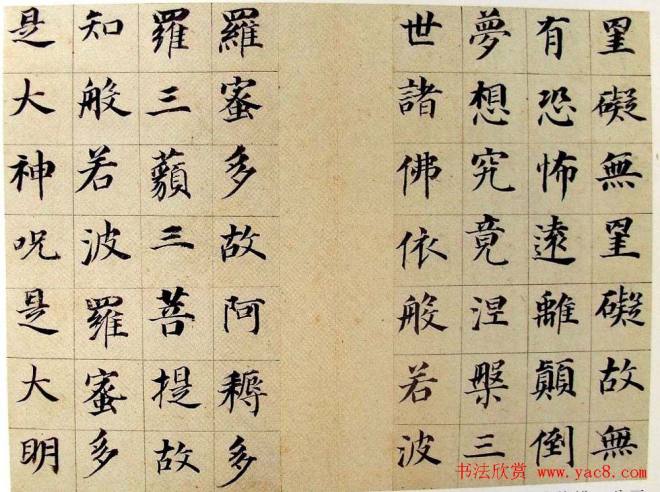 罣礙無罣礙故無
有恐怖遠離顛倒
夢想究竟涅槃三
世諸佛依般若波
羅蜜多故阿耨多
羅三藐三菩提故
知般若波羅蜜多
是大神呪是大明
书法欣赏
www.yac8.com